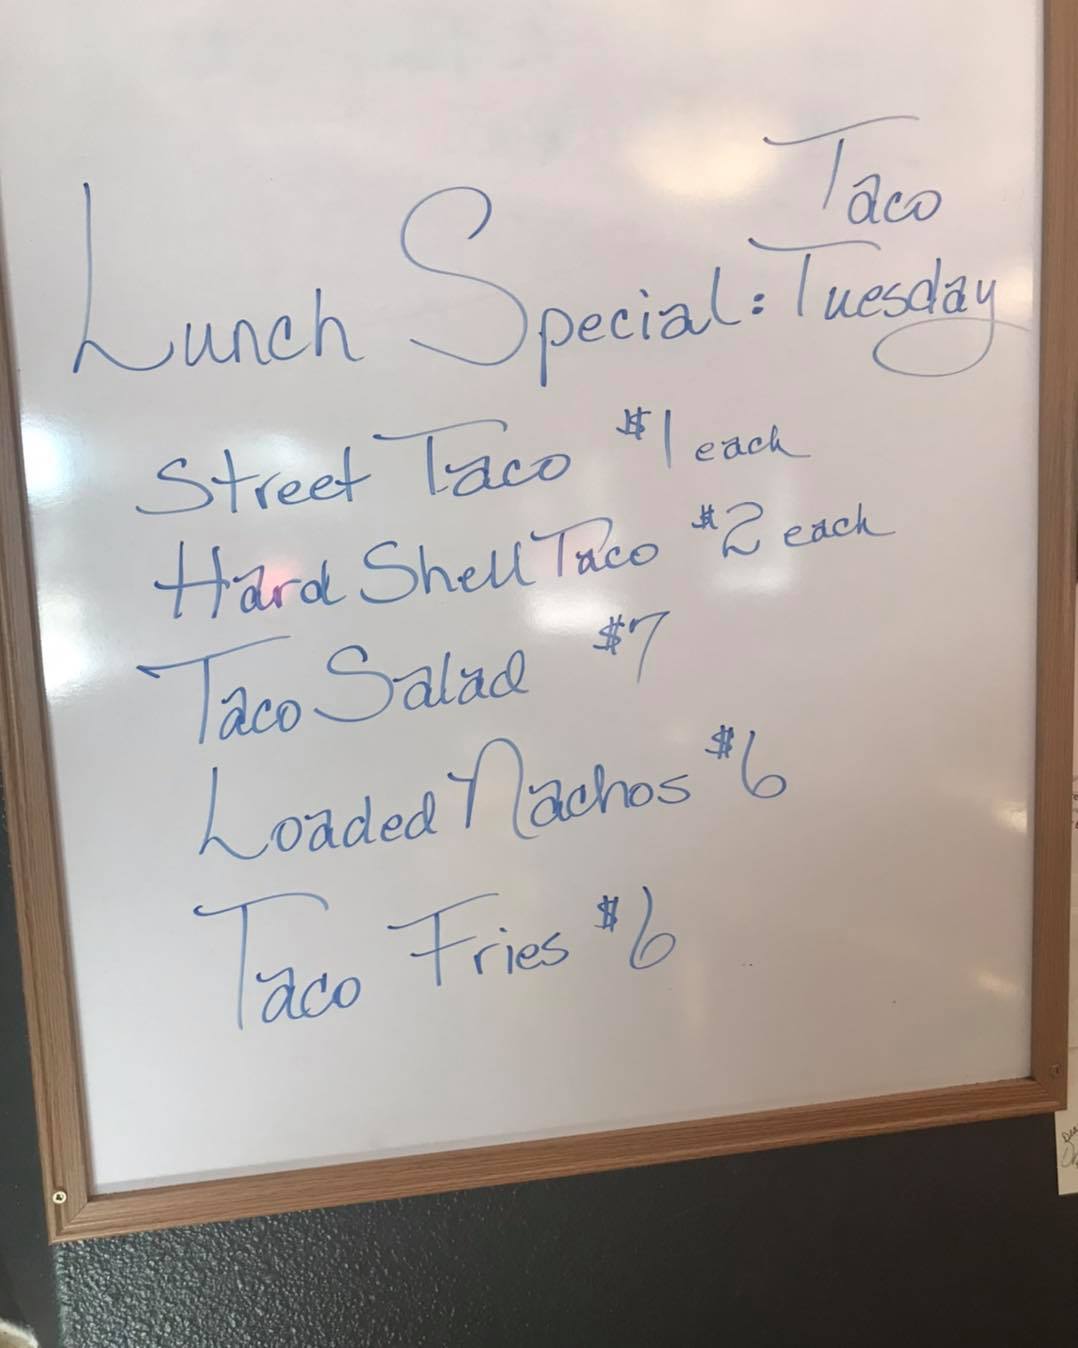 Lunch Special: Taco Tuesday
Street Taco $1 each
Hard Shell Taco $2 each
Taco Salad $7
Loaded Nachos $6
Taco Fries $6